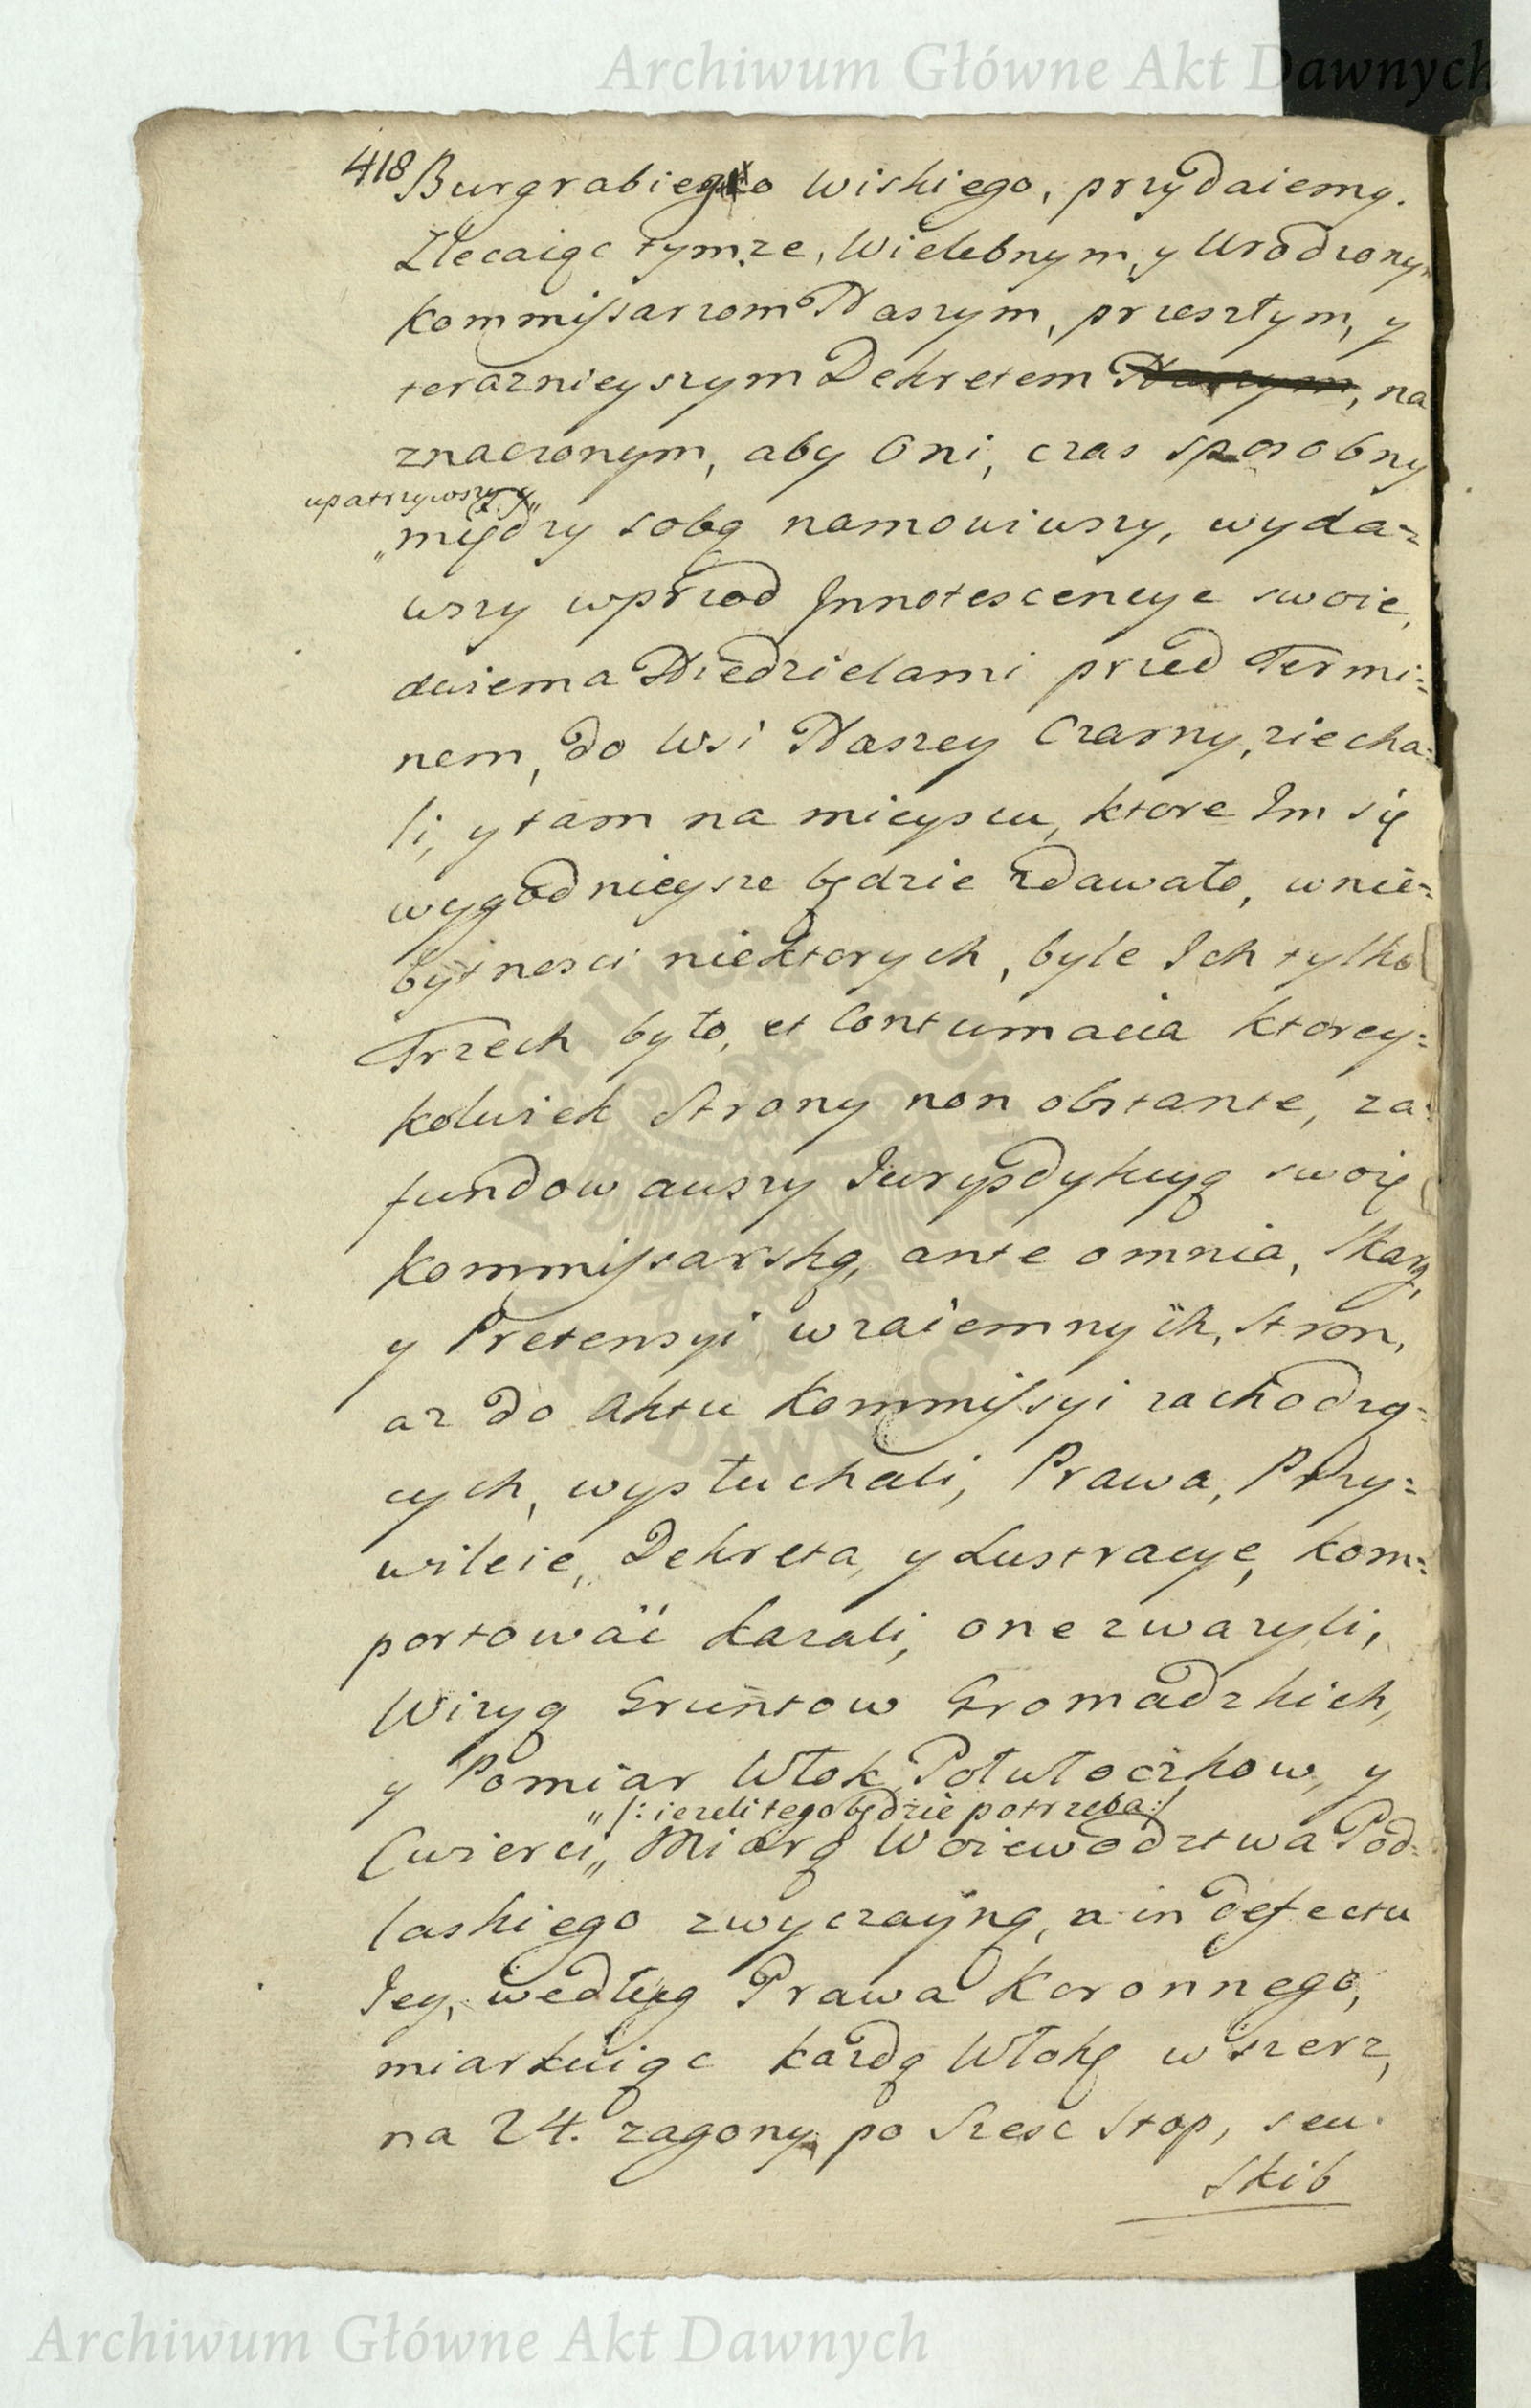 Archiwum Główne Akt Dawnych
418 Burgrabiego Wiskiego, przydaiemy.
Zlecaiąc tymże, Wielebnym, y Urodzonym
Kommissarzom Naszym, przeszłym, y
teraznieyszym Dekretem Naszym, na
znaczonym, aby Oni, czas sposobny
upatrzywszy y„
„między sobą namowiwszy, wyda=
wszy wprzod Innotescencye swoie,
dwiema Niedzielami przed Termi=
nem, do Wsi Naszey Czarny, ziecha=
li, y tam na mieyscu, ktore Im się
wygodnieysze będzie zdawało, w nie=
bytnosci niektorych, byle Ich tylko
Trzech było, et Contumacia ktorey=
kolwiek Strony non obstante, za=
fundowawszy Iurysdykcyą swoię
Kommissarską, ante omnia, Skarg,
y Pretensyi wzaiemnych, Stron,
az do Aktu Kommissyi zachodzą=
cych, wysłuchali, Prawa, Przy=
wileie, Dekreta, y Lustracye, kom=
portować kazali, one zwazyli,
Wizyą Gruntow Gromadzkich,
y Pomiar Włok, Połwłoczkow, y
„/: iezeli tego będzie potrzeba :/
Cwierci„ Miarą Woiewodztwa Pod=
laskiego zwyczayną, a in defectu
Iey, według Prawa Koronnego,
miarkuiąc kazdą Włokę wszerz,
na 24. zagony po Szesc Stop, seu
Skib
ARCHIWUM GŁÓWNE AKT DAWNYCH
Archiwum Główne Akt Dawnych